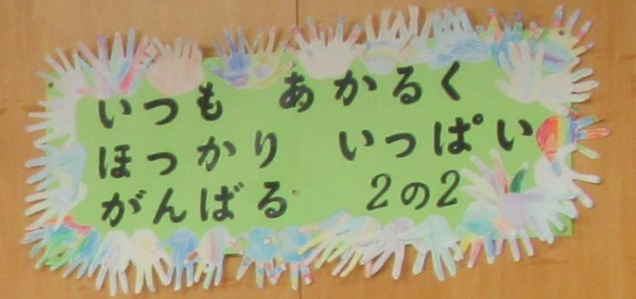 いつも あかるく
ほっかり いっぱい
がんばる 2の2